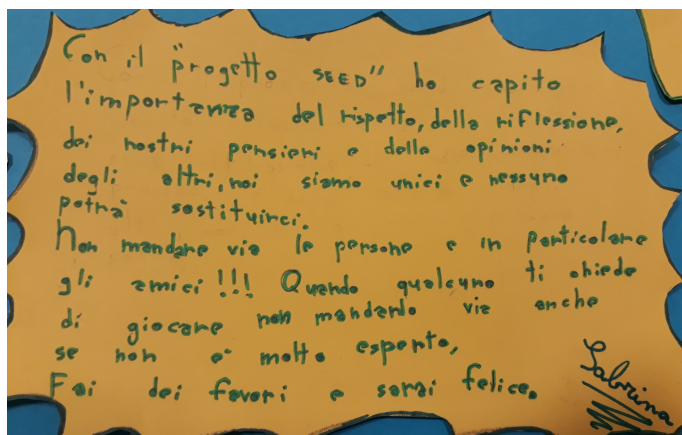 Con il "progetto SEED" ho capito
l'importanza del rispetto, della riflessione,
dei nostri pensieri e delle opinioni
degli altri, noi siamo unici e nessuno
potrà sostituirci.
Non mandare via le persone e in particolare
gli amici!!! Quando qualcuno ti chiede
di giocare non mandarlo via anche
se non è molto esperto,
Fai dei favori e sarai felice.
Sabrina